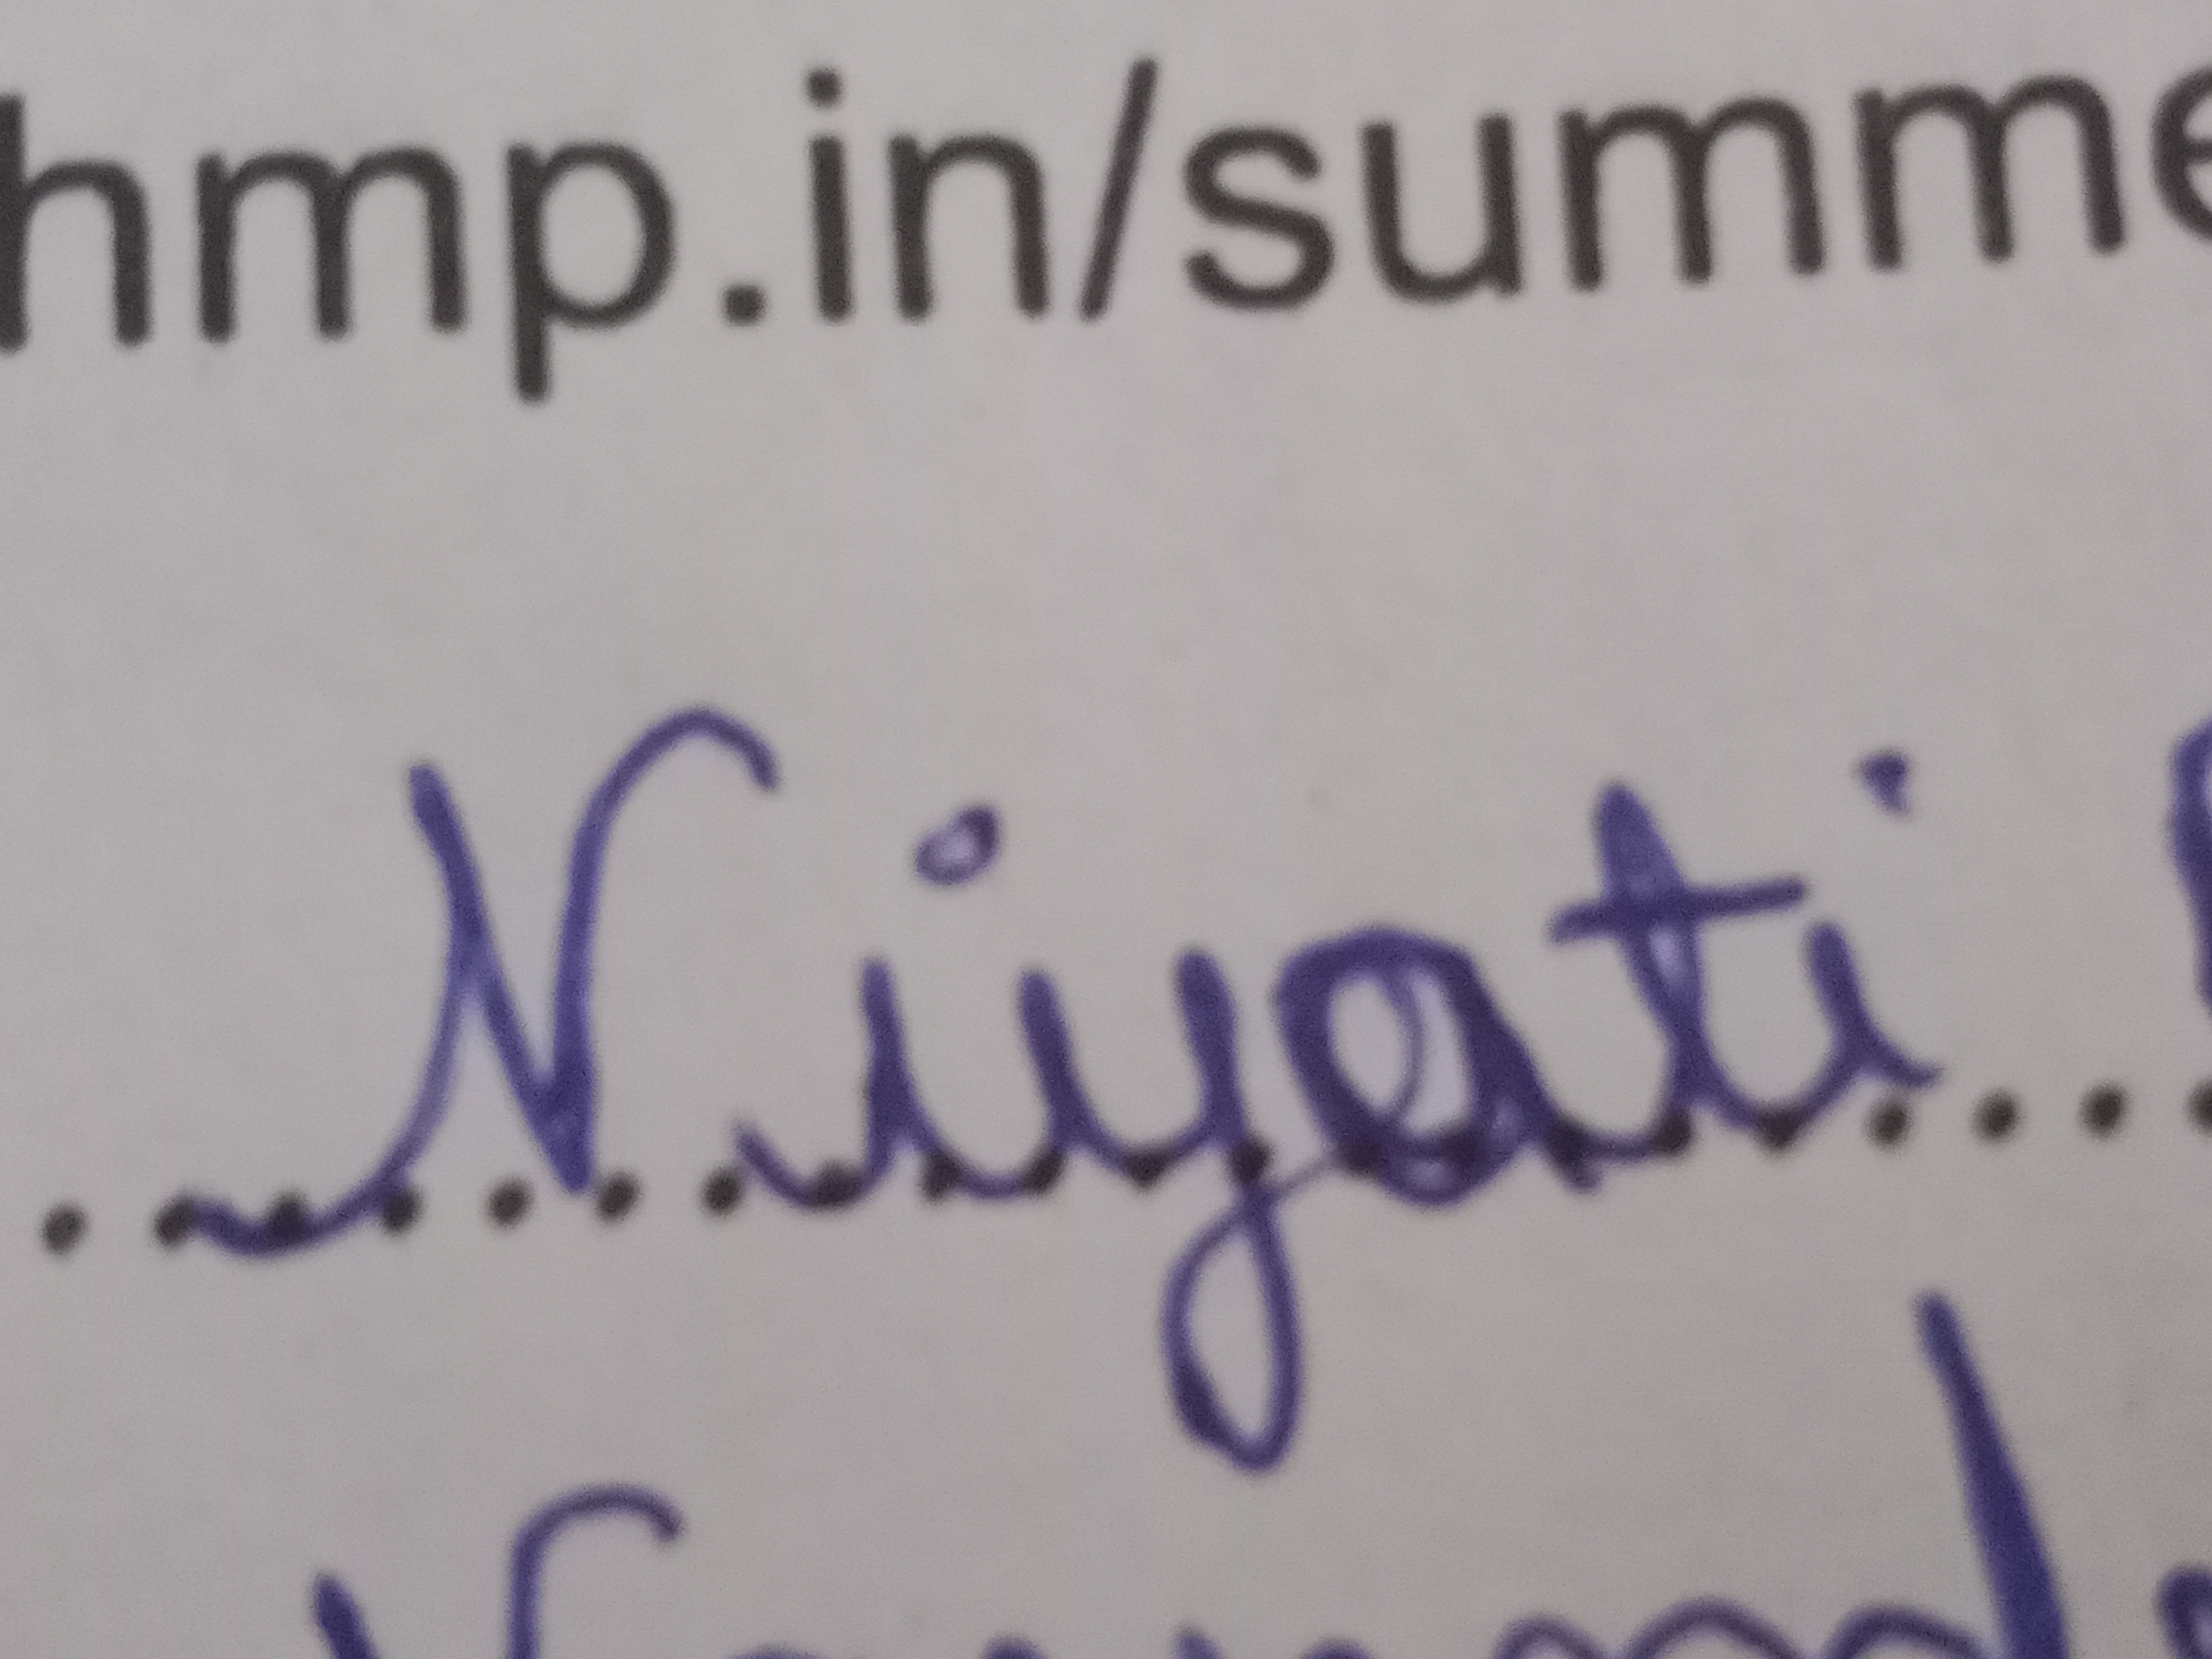 hmp.in/summe
Niyati